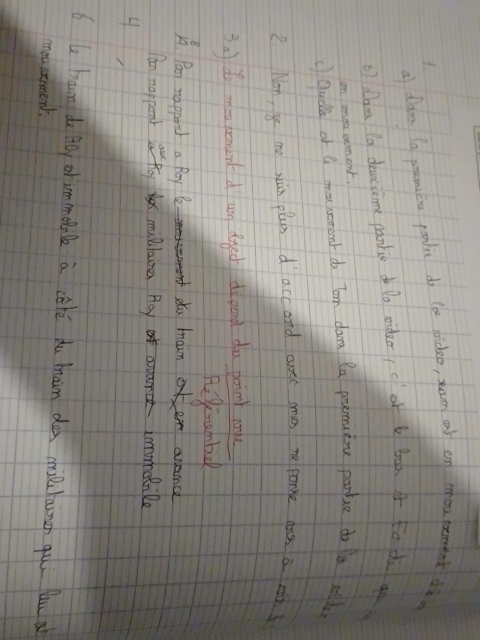 1
a) Dans la première partie de la video, sam est en mouvement
b) Dans la deuxième partie de la video, c'est le bus et
en mouvement.
c) Quelle est le mouvement de Tom dans la première partie de la
2 Non, je ne suis plus d'accord avec ma réponse
3 a) Le mouvement d'un objet dépend du point
Référentiel
B. Par rapport a Roy le mouvement du train est avance
Par rapport aux militaires Roy est avance immobile
4
6 Le train de Roy est immobile à côté du train des militaires qui lui est
mouvement.